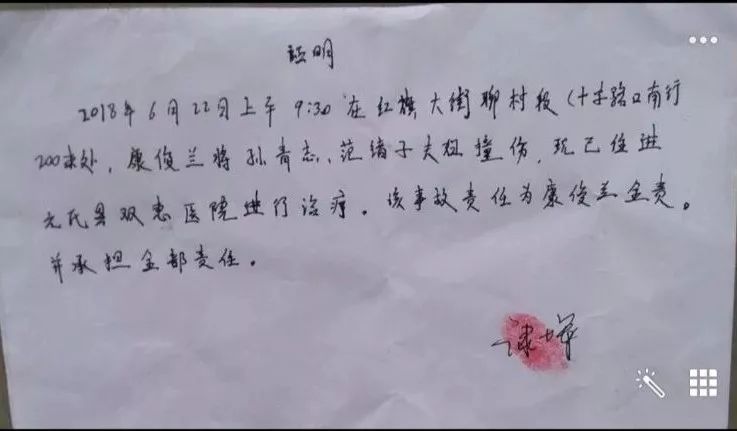 证明
2018年6月22日上午9:30在红旗大街聊村段(十字路口南行
200米处,康俊兰将孙青志、范绪子夫妇撞伤,现已住进
元氏县双惠医院进行治疗。该事故责任为康俊兰全责。
并承担全部责任。